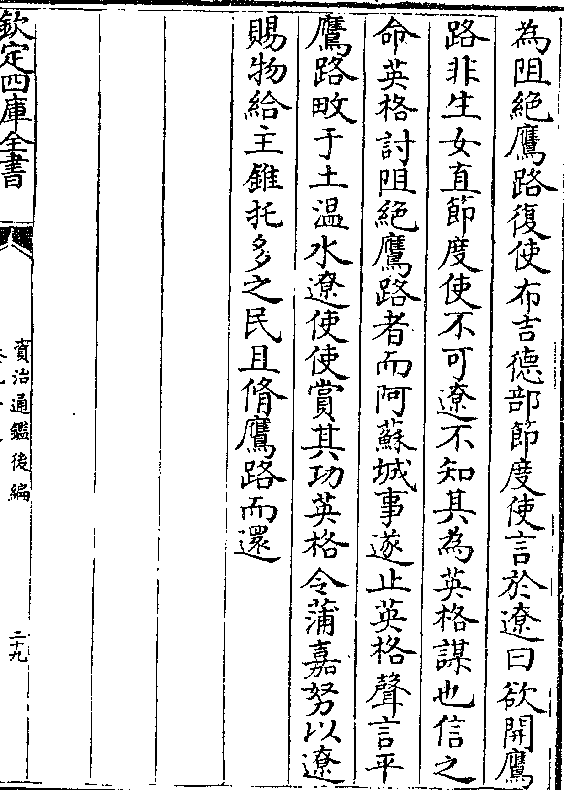 為阻絕鷹路復使布吉德部節度使言於遼曰欲開鷹
路非生女直節度使不可遼不知其為英格謀也信之
命英格討阻絕鷹路者而阿蘇城事遂止英格聲言平
鷹路畋于土温水遼使使賞其功英格令蒲嘉努以遼
賜物給主錐托多之民且脩鷹路而還
欽定四庫全書
資治通鑑後編
二十九